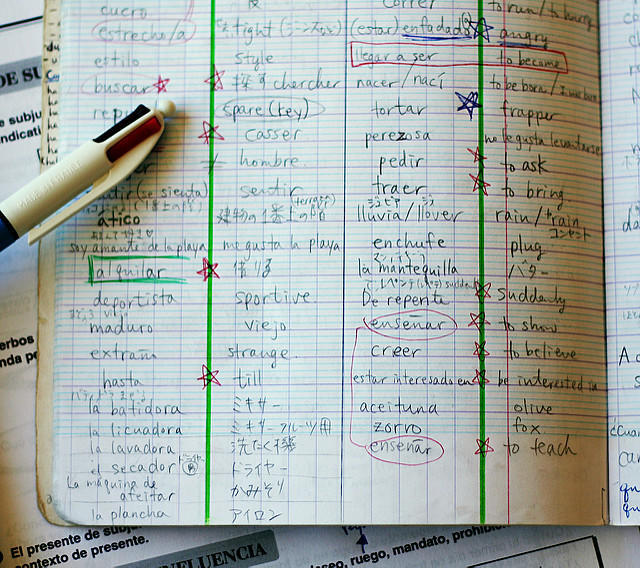 cuero 皮 correr to run / to hurry
estrecho/a tight (ジーンズなど) (estar) enfadado angry
estilo style llegar a ser to become
buscar 探す chercher nacer / nací to be born
spare (key) tortar frapper
casser perezosa no le gusta levantarse
hombre pedir to ask
sentir (se sienta) sentir traer to bring
ático 建物の1番上の階 (terraza) lluvia / llover rain / train
soy amante de la playa me gusta la playa enchufe plug コンセント
alquilar 借りる la mantequilla バター
deportista sportive De repente suddenly
maduro viejo enseñar to show
extraño strange. creer to believe
hasta till estar interesado en be interested in
la batidora ミキサー aceituna olive
la licuadora ミキサーフルーツ用 zorro fox
la lavadora 洗たく機 enseñar to teach
el secador ドライヤー
La máquina de
afeitar かみそり
la plancha アイロン
El presente de subj
contexto de presente.
FLUENCIA
deseo, ruego, mandato, prohibi